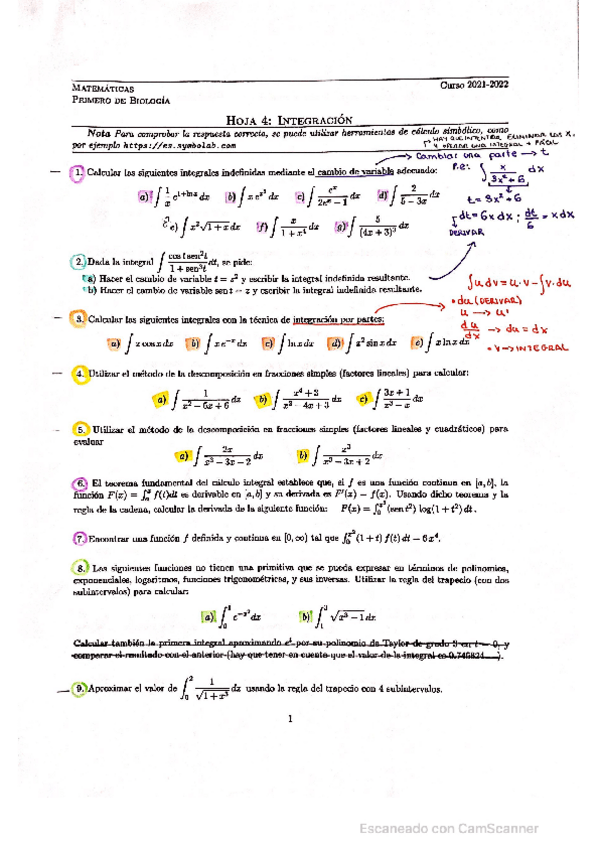 MATEMÁTICAS Curso 2021-2022
PRIMERO DE BIOLOGÍA
HOJA 4: INTEGRACIÓN
Nota Para comprobar la respuesta correcta, se puede utilizar herramientas de cálculo simbólico, como
por ejemplo https://es.symbolab.com
HAY QUE INTENTAR ELIMINAR LAS X.
Y OPERAR UNA INTEGRAL + FÁCIL
→ Cambiar una parte → t
1. Calcular las siguientes integrales indefinidas mediante el cambio de variable adecuado:
P.e: ∫ x/(3x²+6) dx
t = 3x² + 6
dt = 6x dx ; dt/6 = x dx
DERIVAR
a) ∫ 1/x e^(1+ln x) dx b) ∫ x e^(x²) dx c) ∫ e^x/(2e^x − 1) dx d) ∫ 2/(5 − 3x) dx
e) ∫ x²√(1 + x) dx f) ∫ x/(1 + x⁴) dx g) ∫ 5/(4x + 3)³ dx
2. Dada la integral ∫ cos t sen²t/(1 + sen²t) dt, se pide:
a) Hacer el cambio de variable t = z² y escribir la integral indefinida resultante.
b) Hacer el cambio de variable sen t = z y escribir la integral indefinida resultante.
∫u dv = u·v − ∫v·du
• du (DERIVAR)
u → u'
du/dx → du = dx
• v → INTEGRAL
3. Calcular las siguientes integrales con la técnica de integración por partes:
a) ∫ x cos x dx b) ∫ x e^(−x) dx c) ∫ ln x dx d) ∫ x² sin x dx e) ∫ x ln x dx
4. Utilizar el método de la descomposición en fracciones simples (factores lineales) para calcular:
a) ∫ 1/(x² − 5x + 6) dx b) ∫ (x⁴ + 3)/(x² − 4x + 3) dx c) ∫ (3x + 1)/(x³ − x) dx
5. Utilizar el método de la descomposición en fracciones simples (factores lineales y cuadráticos) para
evaluar
a) ∫ 2x/(x³ − 3x − 2) dx b) ∫ x³/(x³ − 3x + 2) dx
6. El teorema fundamental del cálculo integral establece que, si f es una función continua en [a, b], la
función F(x) = ∫ₐˣ f(t)dt es derivable en [a, b] y su derivada es F'(x) = f(x). Usando dicho teorema y la
regla de la cadena, calcular la derivada de la siguiente función: F(x) = (sen t²) log(1 + t²) dt.
7. Encontrar una función f definida y continua en [0, ∞) tal que ∫₀^(x²) (1 + t) f(t) dt = 6x⁴.
8. Las siguientes funciones no tienen una primitiva que se pueda expresar en términos de polinomios,
exponenciales, logaritmos, funciones trigonométricas, y sus inversas. Utilizar la regla del trapecio (con dos
subintervalos) para calcular:
a) ∫₀¹ e^(−x²) dx b) ∫₁³ √(x³ − 1) dx
Calcular también la primera integral aproximando e^t por su polinomio de Taylor de grado 3 en t = 0, y
comparar el resultado con el anterior (hay que tener en cuenta que el valor de la integral es 0.746824...).
9. Aproximar el valor de ∫₀² 1/√(1 + x³) dx usando la regla del trapecio con 4 subintervalos.
1
Escaneado con CamScanner